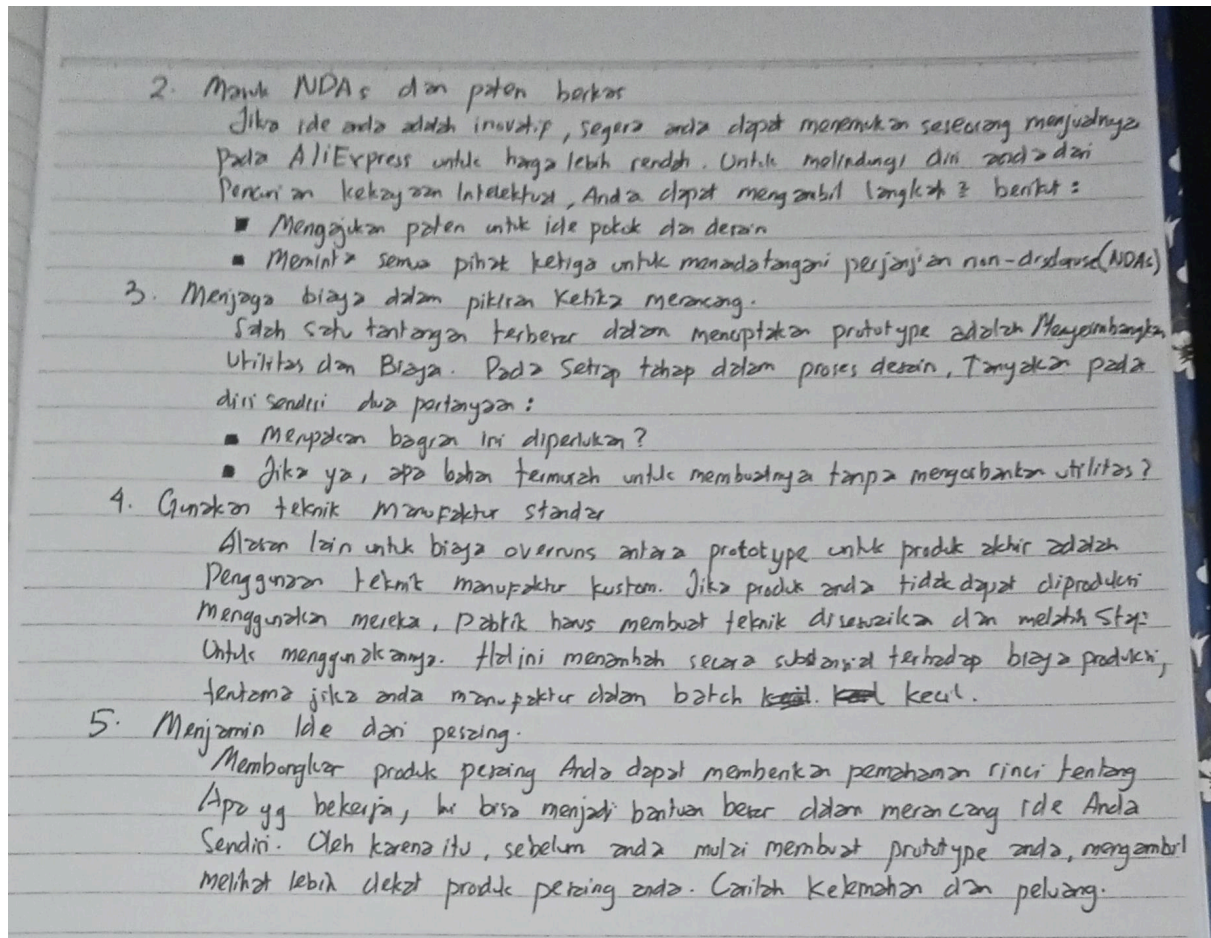 2. Masuk NDAs dan paten berkas
Jika ide anda adalah inovatip, segera anda dapat menemukan seseorang menjualnya
Pada AliExpress untuk harga lebih rendah. Untuk melindungi diri anda dari
Pencurian kekayaan Intelektual, Anda dapat mengambil langkah 2 berikut :
▪ Mengajukan paten untuk ide pokok dan desain
▪ Meminta semua pihak ketiga untuk manadatangani perjanjian non-disclosure (NDAs)
3. Menjaga biaya dalam pikiran Ketika merancang.
Salah satu tantangan terbesar dalam menciptakan prototype adalah Menyeimbangkan
Utilitas dan Biaya. Pada Setiap tahap dalam proses desain, Tanyakan pada
diri sendiri dua pertanyaan :
▪ Merupakan bagian ini diperlukan ?
▪ Jika ya, apa bahan termurah untuk membuatnya tanpa mengorbankan utilitas ?
4. Gunakan teknik manufaktur standar
Alasan lain untuk biaya overruns antara prototype untuk produk akhir adalah
Penggunaan teknik manufaktur kustom. Jika produk anda tidak dapat diproduksi
menggunakan mereka, Pabrik harus membuat teknik disesuaikan dan melatih Staf
Untuk menggunakannya. Hal ini menambah secara substansial terhadap biaya produksi,
terutama jika anda manufaktur dalam batch kecil.
5. Menjamin Ide dari pesaing.
Membongkar produk pesaing Anda dapat memberikan pemahaman rinci tentang
Apa yg bekerja, ini bisa menjadi bantuan besar dalam merancang ide Anda
Sendiri. Oleh karena itu, sebelum anda mulai membuat prototype anda, mengambil
melihat lebih dekat produk pesaing anda. Carilah Kelemahan dan peluang.